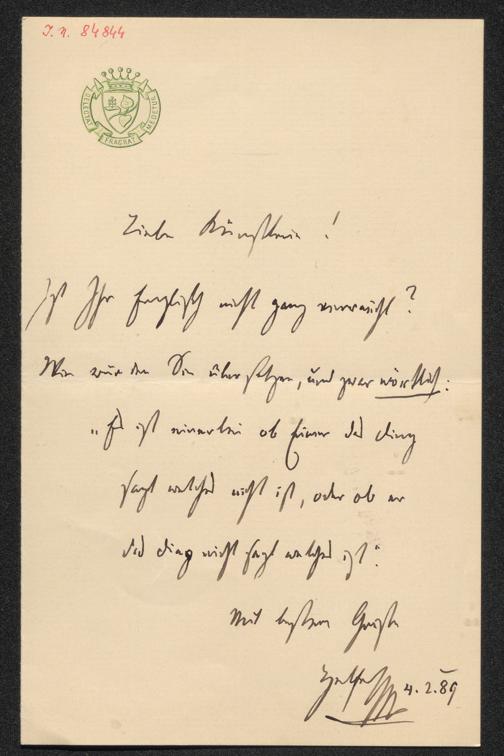 I. N. 84844
DELECTAT FRAGRAT MEDETUR
Liebe Künstlerin!
Ist Ihr Englisch nicht ganz verraucht?
Wie würden Sie übersetzen, und zwar wörtlich:
„Es ist einerlei ob Einer das Ding
sagt welches nicht ist, oder ob er
das Ding nicht sagt welches ist“.
Mit bestem Gruße
4. 2. 89